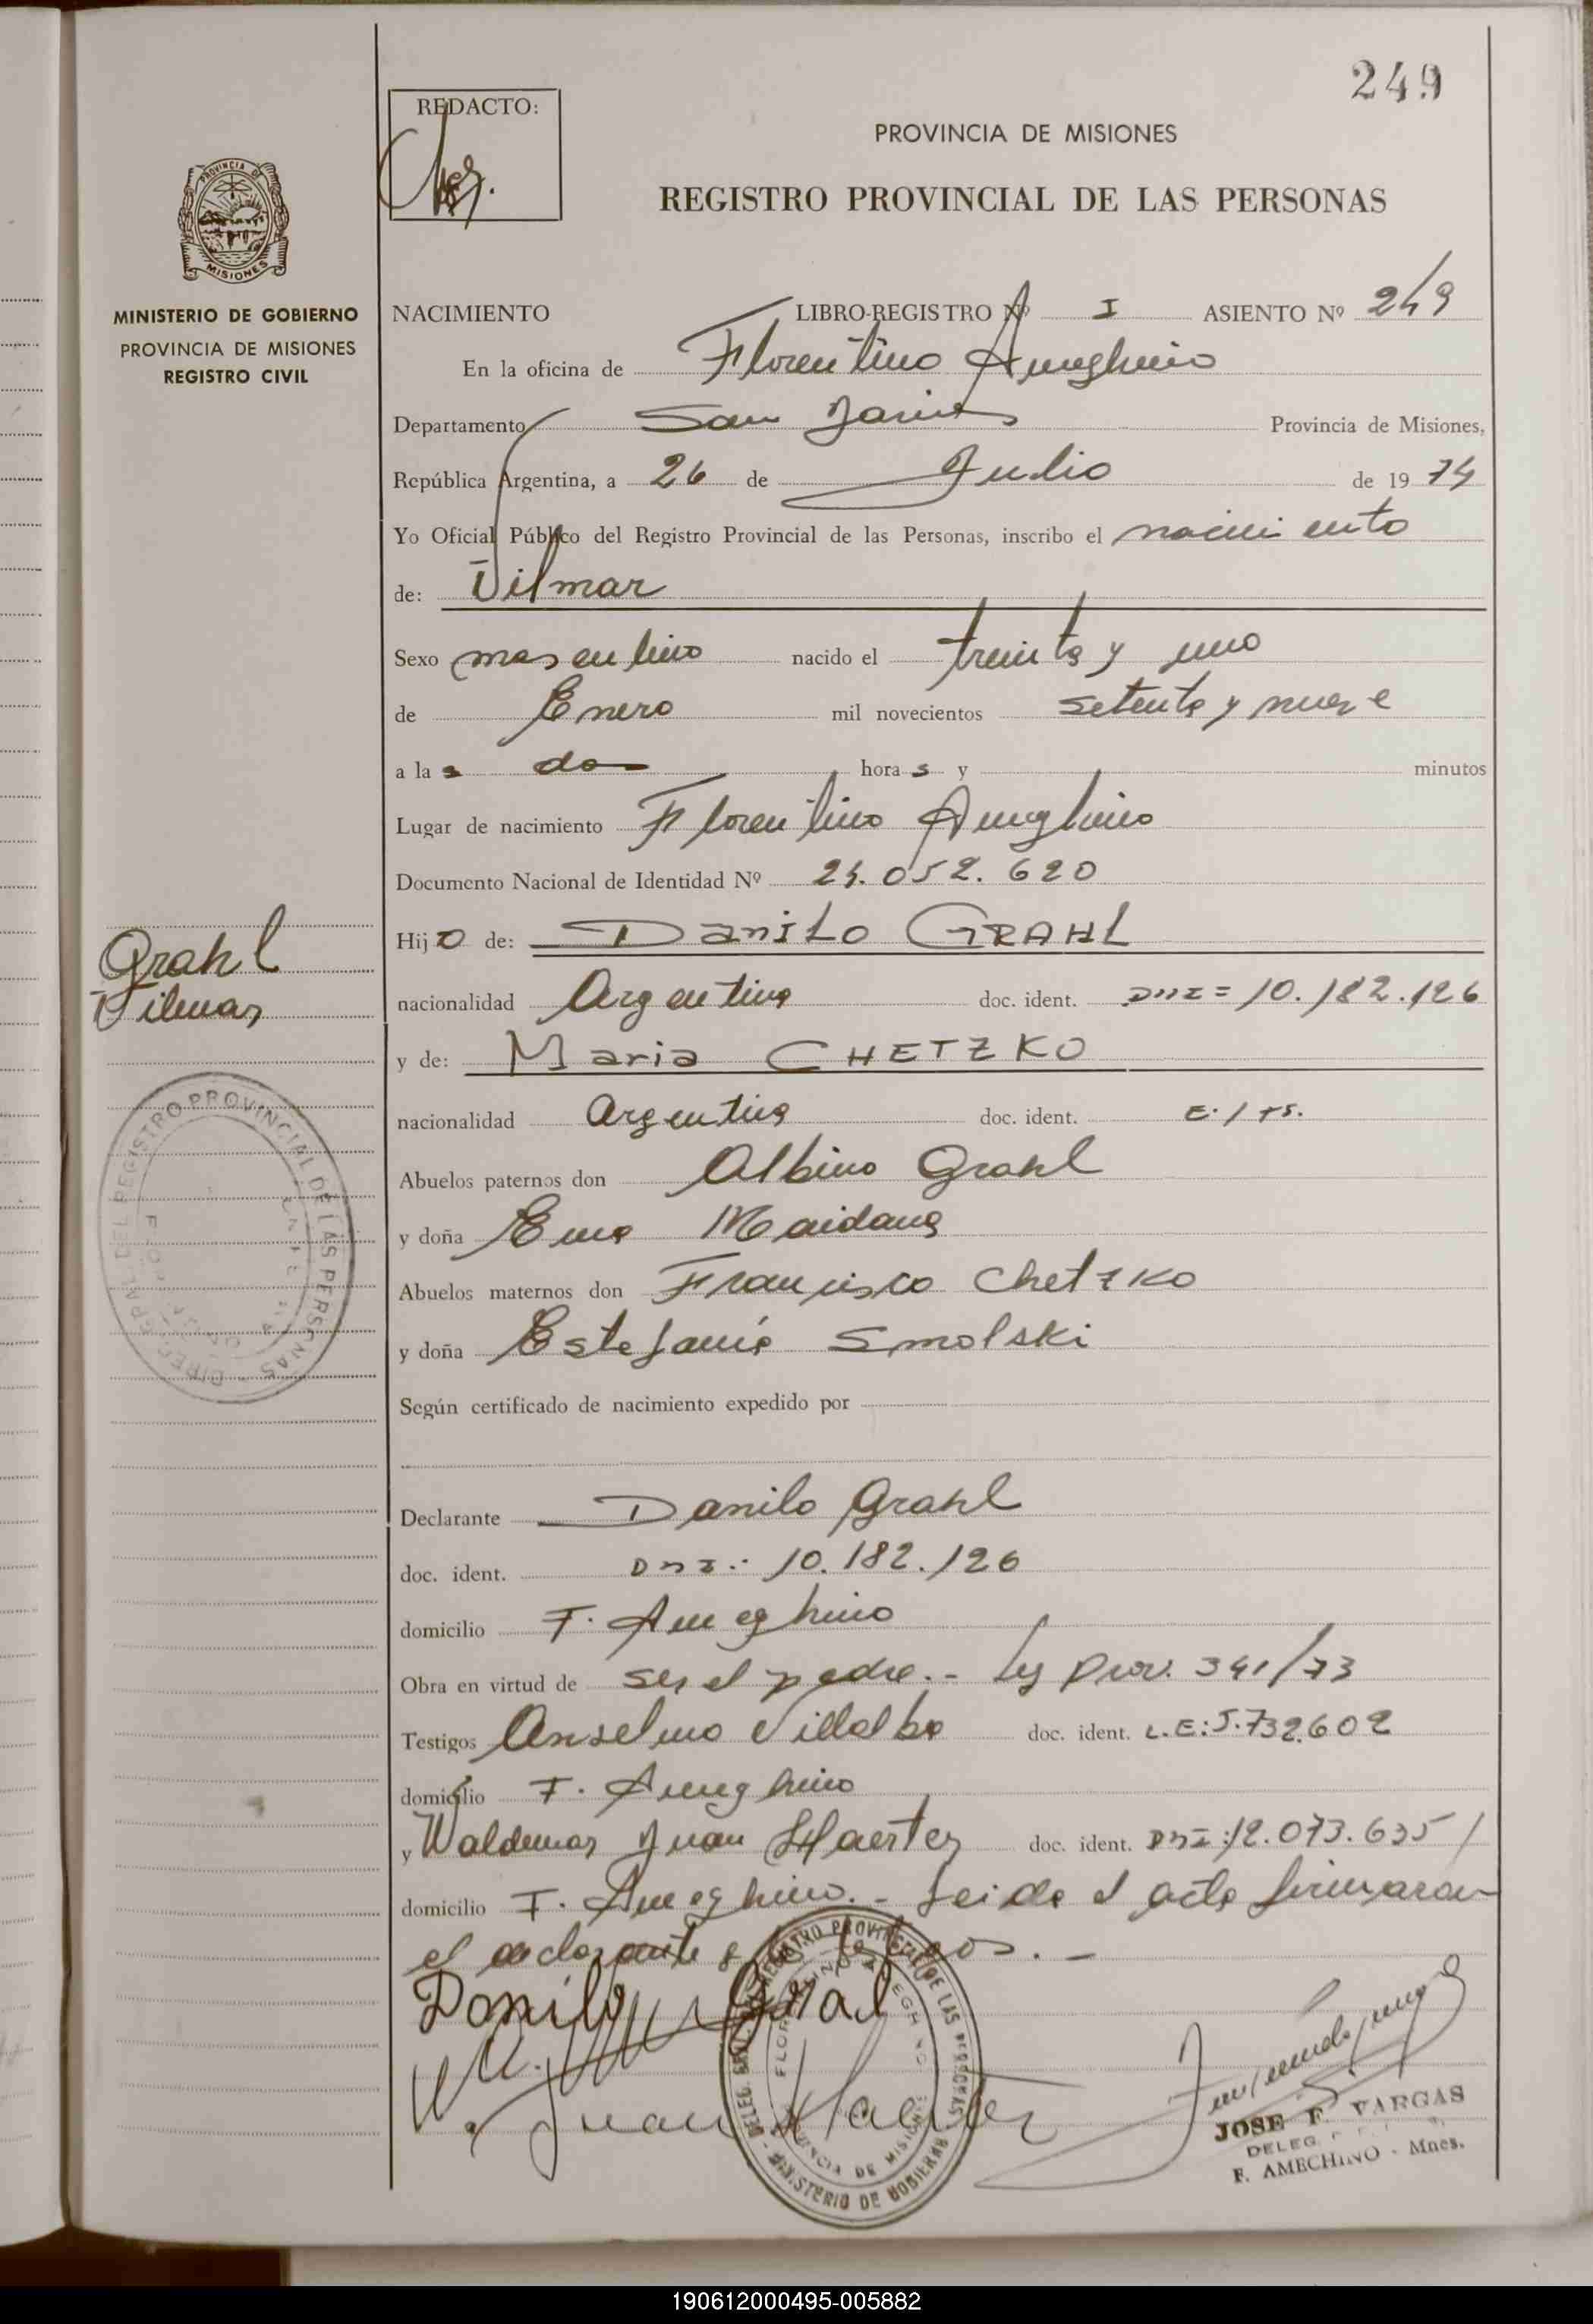 249
REDACTO:
PROVINCIA DE MISIONES
REGISTRO PROVINCIAL DE LAS PERSONAS
PROVINCIA DE
MISIONES
MINISTERIO DE GOBIERNO
PROVINCIA DE MISIONES
REGISTRO CIVIL
NACIMIENTO LIBRO-REGISTRO Nº I ASIENTO Nº 249
En la oficina de Florentino Ameghino
Departamento San Javier Provincia de Misiones,
República Argentina, a 26 de Julio de 19 74
Yo Oficial Público del Registro Provincial de las Personas, inscribo el nacimiento
de: Vilmar
Sexo masculino nacido el treinta y uno
de Enero mil novecientos setenta y nueve
a las dos horas y minutos
Lugar de nacimiento Florentino Ameghino
Documento Nacional de Identidad Nº 24.052.620
Hijo de: Danilo GRAHL
Grahl
Vilmar
nacionalidad Argentina doc. ident. DNI= 10.182.126
y de: Maria CHETZKO
nacionalidad Argentina doc. ident.
Abuelos paternos don Albino Grahl
y doña Ema Maidana
Abuelos maternos don Francisco Chetzko
y doña Estefania Smolski
DIREC. GRAL. DEL REGISTRO PROVINCIAL DE LAS PERSONAS
Según certificado de nacimiento expedido por
Declarante Danilo Grahl
doc. ident. DNI.: 10.182.126
domicilio F. Ameghino
Obra en virtud de ser el padre.- Ley Prov. 341/73
Testigos Anselmo Villalba doc. ident. L.E: 5.732.602
domicilio F. Ameghino
y Waldemar Juan Haerter doc. ident. DNI: 12.073.635/
domicilio F. Ameghino.- Leida el acta firmaron
el declarante y los testigos.-
Danilo Gral
Juan Haerter
DELEG. REGISTRO PROVINCIAL DE LAS PERSONAS
FLORENTINO AMEGHINO
PROVINCIA DE MISIONES
MINISTERIO DE GOBIERNO
JOSE F. VARGAS
DELEG.
F. AMEGHINO - Mnes.
190612000495-005882